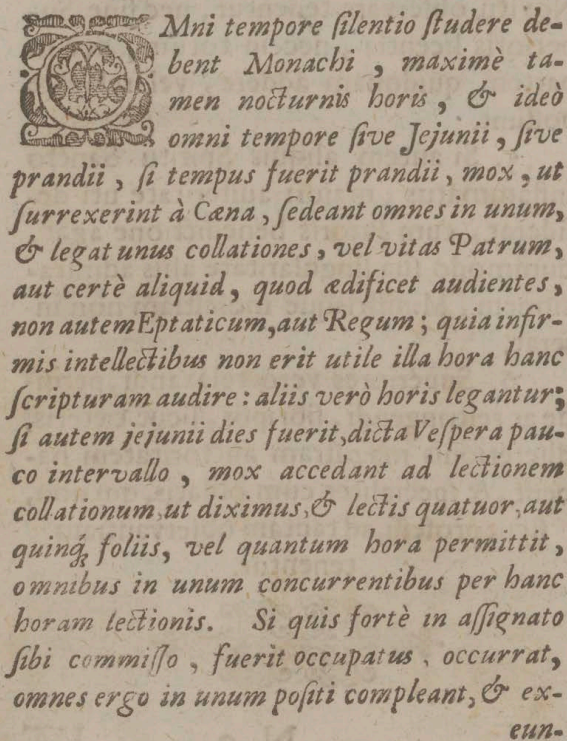 OMni tempore ſilentio ſtudere de-
bent Monachi, maximè ta-
men nocturnis horis, & ideò
omni tempore ſive Jejunii, ſive
prandii, ſi tempus fuerit prandii, mox, ut
ſurrexerint à Cæna, ſedeant omnes in unum,
& legat unus collationes, vel vitas Patrum,
aut certè aliquid, quod ædificet audientes,
non autem Eptaticum, aut Regum; quia infir-
mis intellectibus non erit utile illa hora hanc
ſcripturam audire: aliis verò horis legantur;
ſi autem jejunii dies fuerit, dicta Veſpera pau-
co intervallo, mox accedant ad lectionem
collationum, ut diximus, & lectis quatuor, aut
quinq́ꝫ foliis, vel quantum hora permittit,
omnibus in unum concurrentibus per hanc
horam lectionis. Si quis fortè in aſſignato
ſibi commiſſo, fuerit occupatus, occurrat,
omnes ergo in unum poſiti compleant, & ex-
eun-